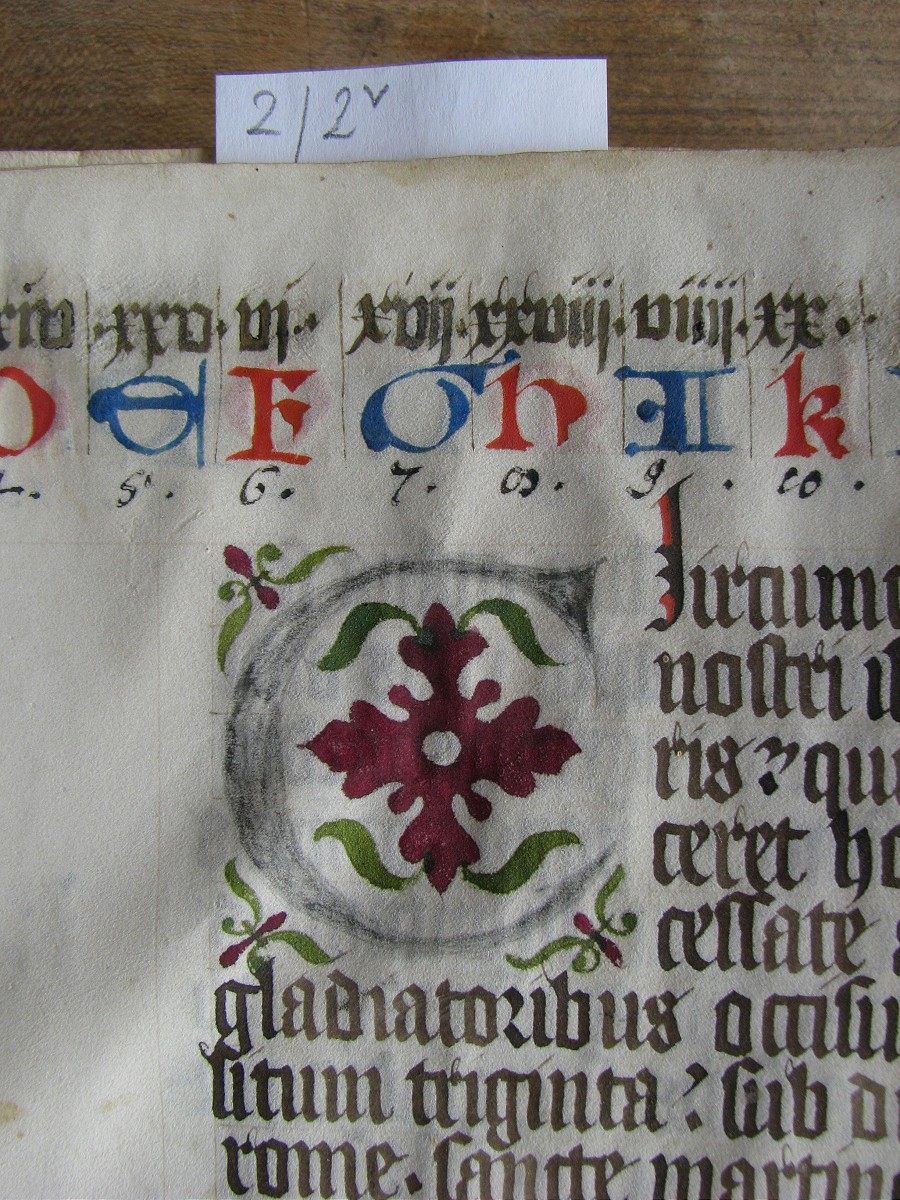 2/2v
xiv · xxv · vj · xvij · xxviii · viiij · xx ·
D E F G h I k
4. 5. 6. 7. 8. 9. 10.
Circumc
nostri
ris qui
ceret ho
cessate
gladiatoribus occisu
situm triginta sub
rome. sancte martine